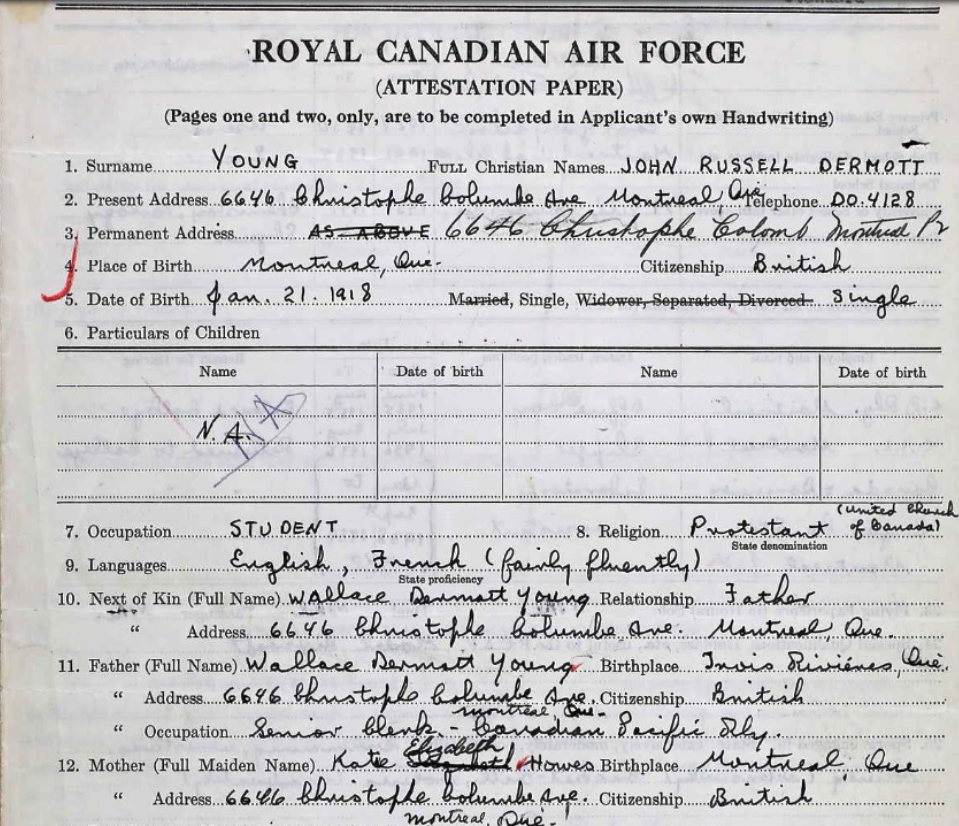 ROYAL CANADIAN AIR FORCE
(ATTESTATION PAPER)
(Pages one and two, only, are to be completed in Applicant's own Handwriting)
1. Surname YOUNG Full Christian Names JOHN RUSSELL DERMOTT
2. Present Address 6646 Christophe Columbe Ave Montreal, Que Telephone DO.4128
3. Permanent Address AS ABOVE 6646 Christophe Colomb Montreal
4. Place of Birth Montreal, Que. Citizenship British
5. Date of Birth Jan. 21. 1918 Married, Single, Widower, Separated, Divorced Single
6. Particulars of Children
Name Date of birth Name Date of birth
N.A. NA
(United Church
7. Occupation STUDENT 8. Religion Protestant of Canada)
State denomination
9. Languages English, French (fairly fluently)
State proficiency
10. Next of Kin (Full Name) Wallace Dermott Young Relationship Father
" Address 6646 Christophe Columbe Ave. Montreal, Que.
11. Father (Full Name) Wallace Dermott Young Birthplace Trois Riviéres, Que.
" Address 6646 Christophe Columbe Ave. Citizenship British
Montreal, Que.
" Occupation Senior Clerk - Canadian Pacific Rly.
Elizabeth
12. Mother (Full Maiden Name) Kate Howes Birthplace Montreal, Que
" Address 6646 Christophe Columbe Ave. Citizenship British
Montreal, Que.